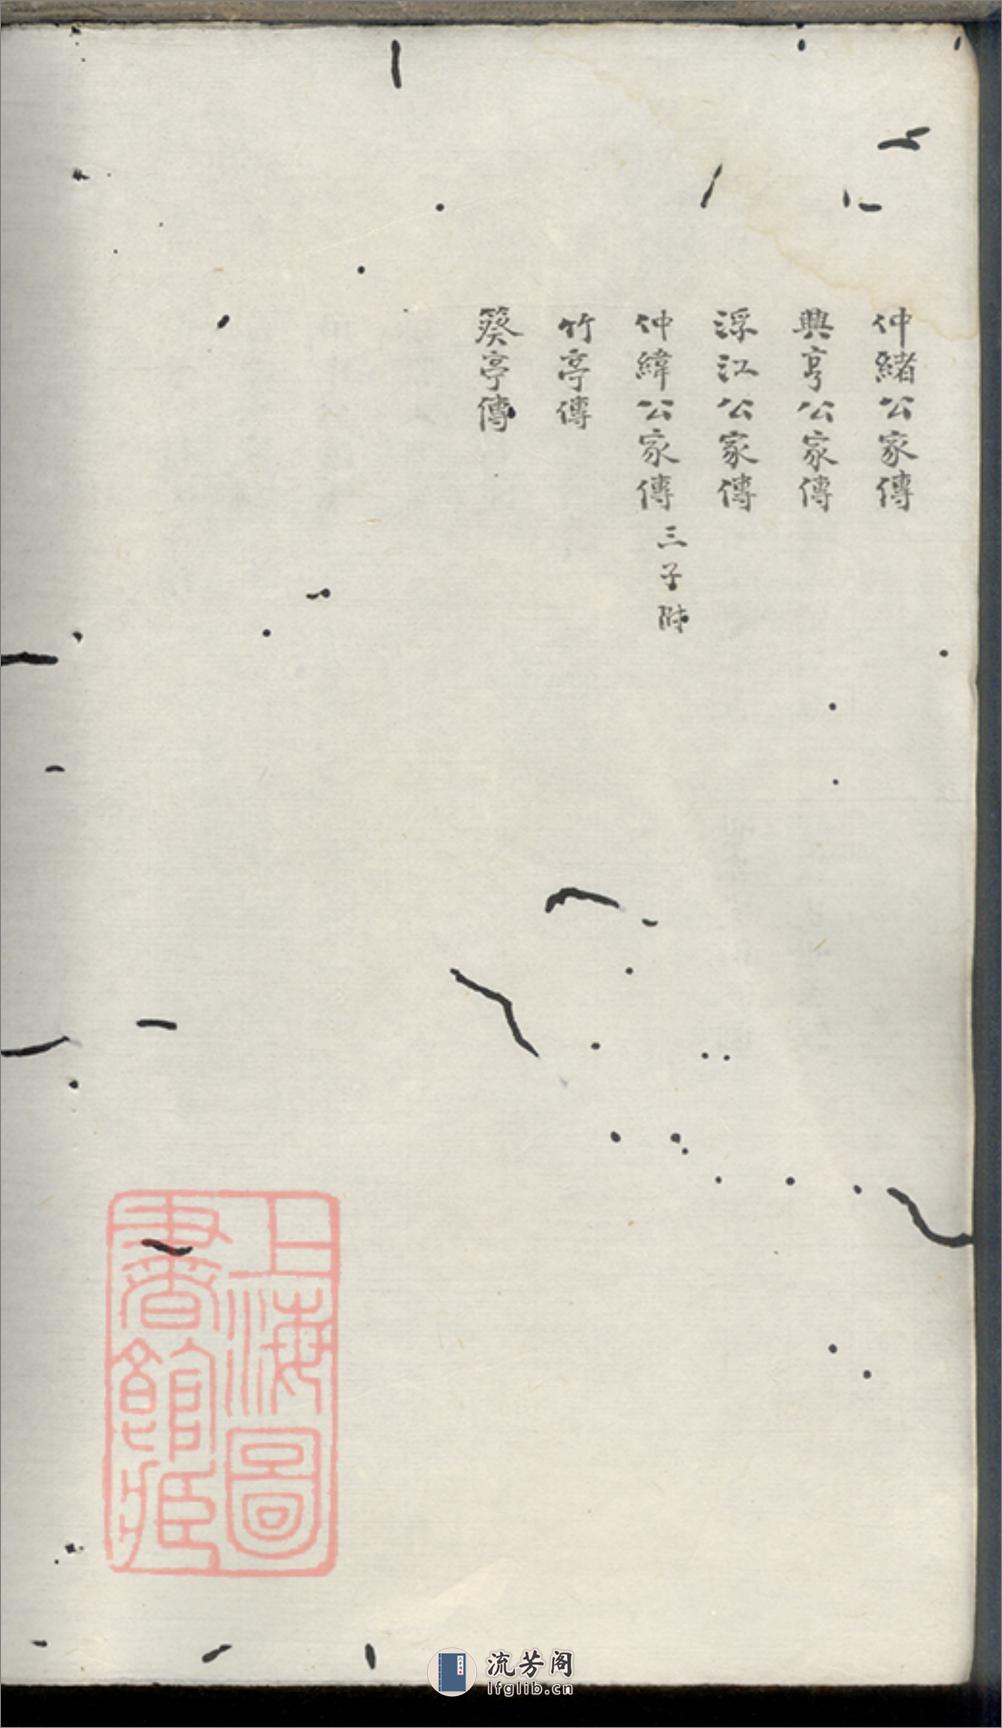 仲緒公家傳
興亨公家傳
浮江公家傳
仲緯公家傳 三子附
竹亭傳
葵亭傳
上海圖
書館藏
流芳阁
lfglib.cn